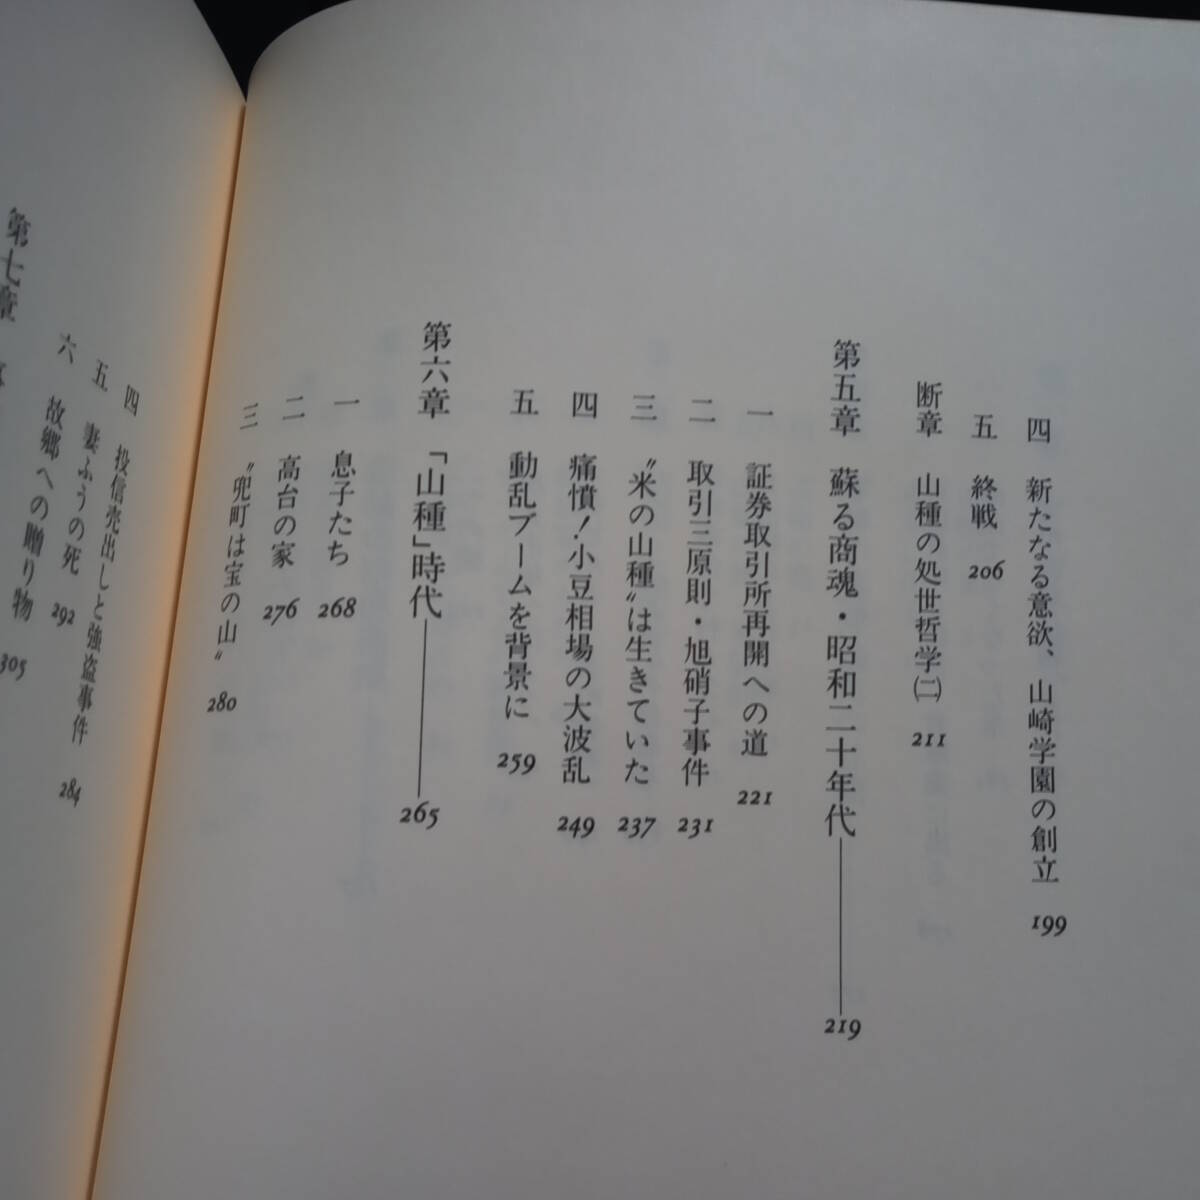 四 新たなる意欲、山崎学園の創立 199
五 終戦 206
断章 山種の処世哲学(二) 211
第五章 蘇る商魂・昭和二十年代 219
一 証券取引所再開への道 221
二 取引三原則・旭硝子事件 231
三 〝米の山種〟は生きていた 237
四 痛憤!小豆相場の大波乱 249
五 動乱ブームを背景に 259
第六章 「山種」時代 265
一 息子たち 268
二 高台の家 276
三 〝兜町は宝の山〟 280
四 投信売出しと強盗事件 284
五 妻ふうの死 292
六 故郷への贈り物 305
第七章